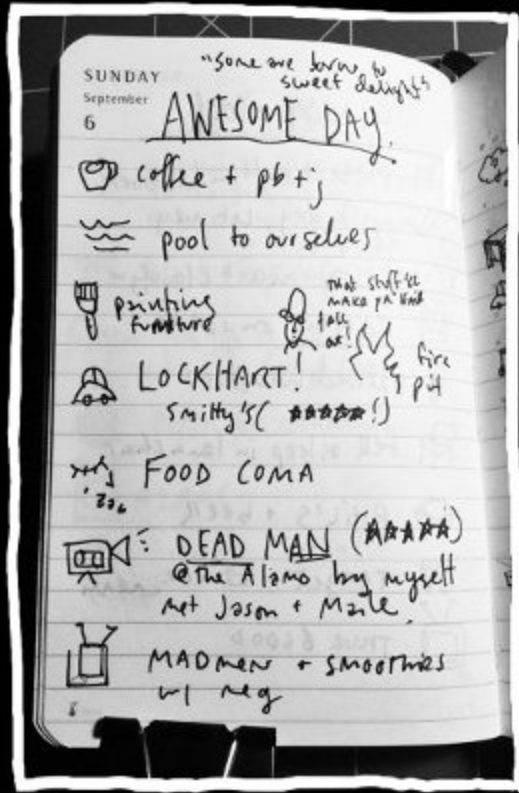 "some are born to
sweet delight"
SUNDAY
September
6
AWESOME DAY
coffee + pb + j
pool to ourselves
painting
furniture
that stuff'll
make ya hair
fall
out!
fire
pit
LOCKHART!
Smitty's (★★★★★!)
FOOD COMA
zzz
DEAD MAN (★★★★★)
@ the Alamo by myself
met Jason +
MADMEN + SMOOTHIES
w/ meg